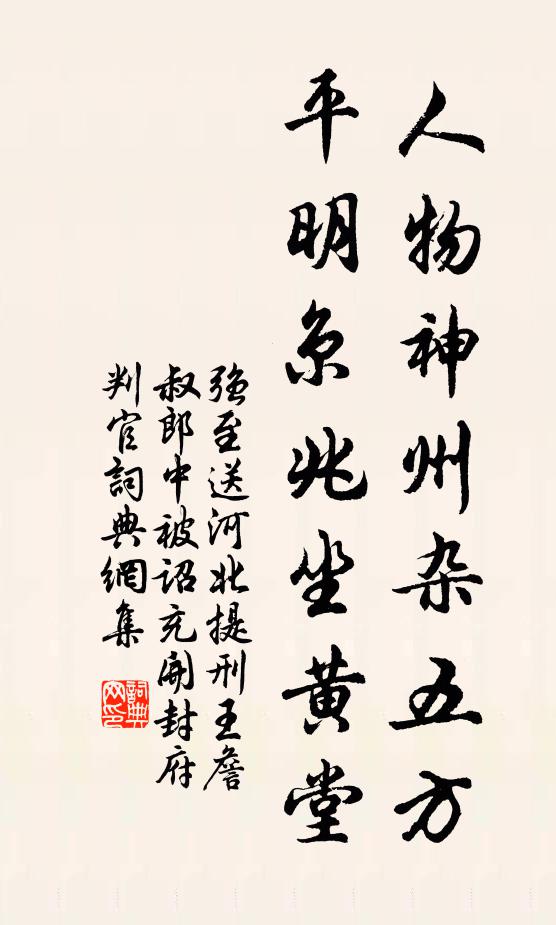 人物神州杂五方
平明京兆坐黄堂
强至送河北提刑王詹
叔郎中被詔充開封府
判官詞典網集
詞典
网印